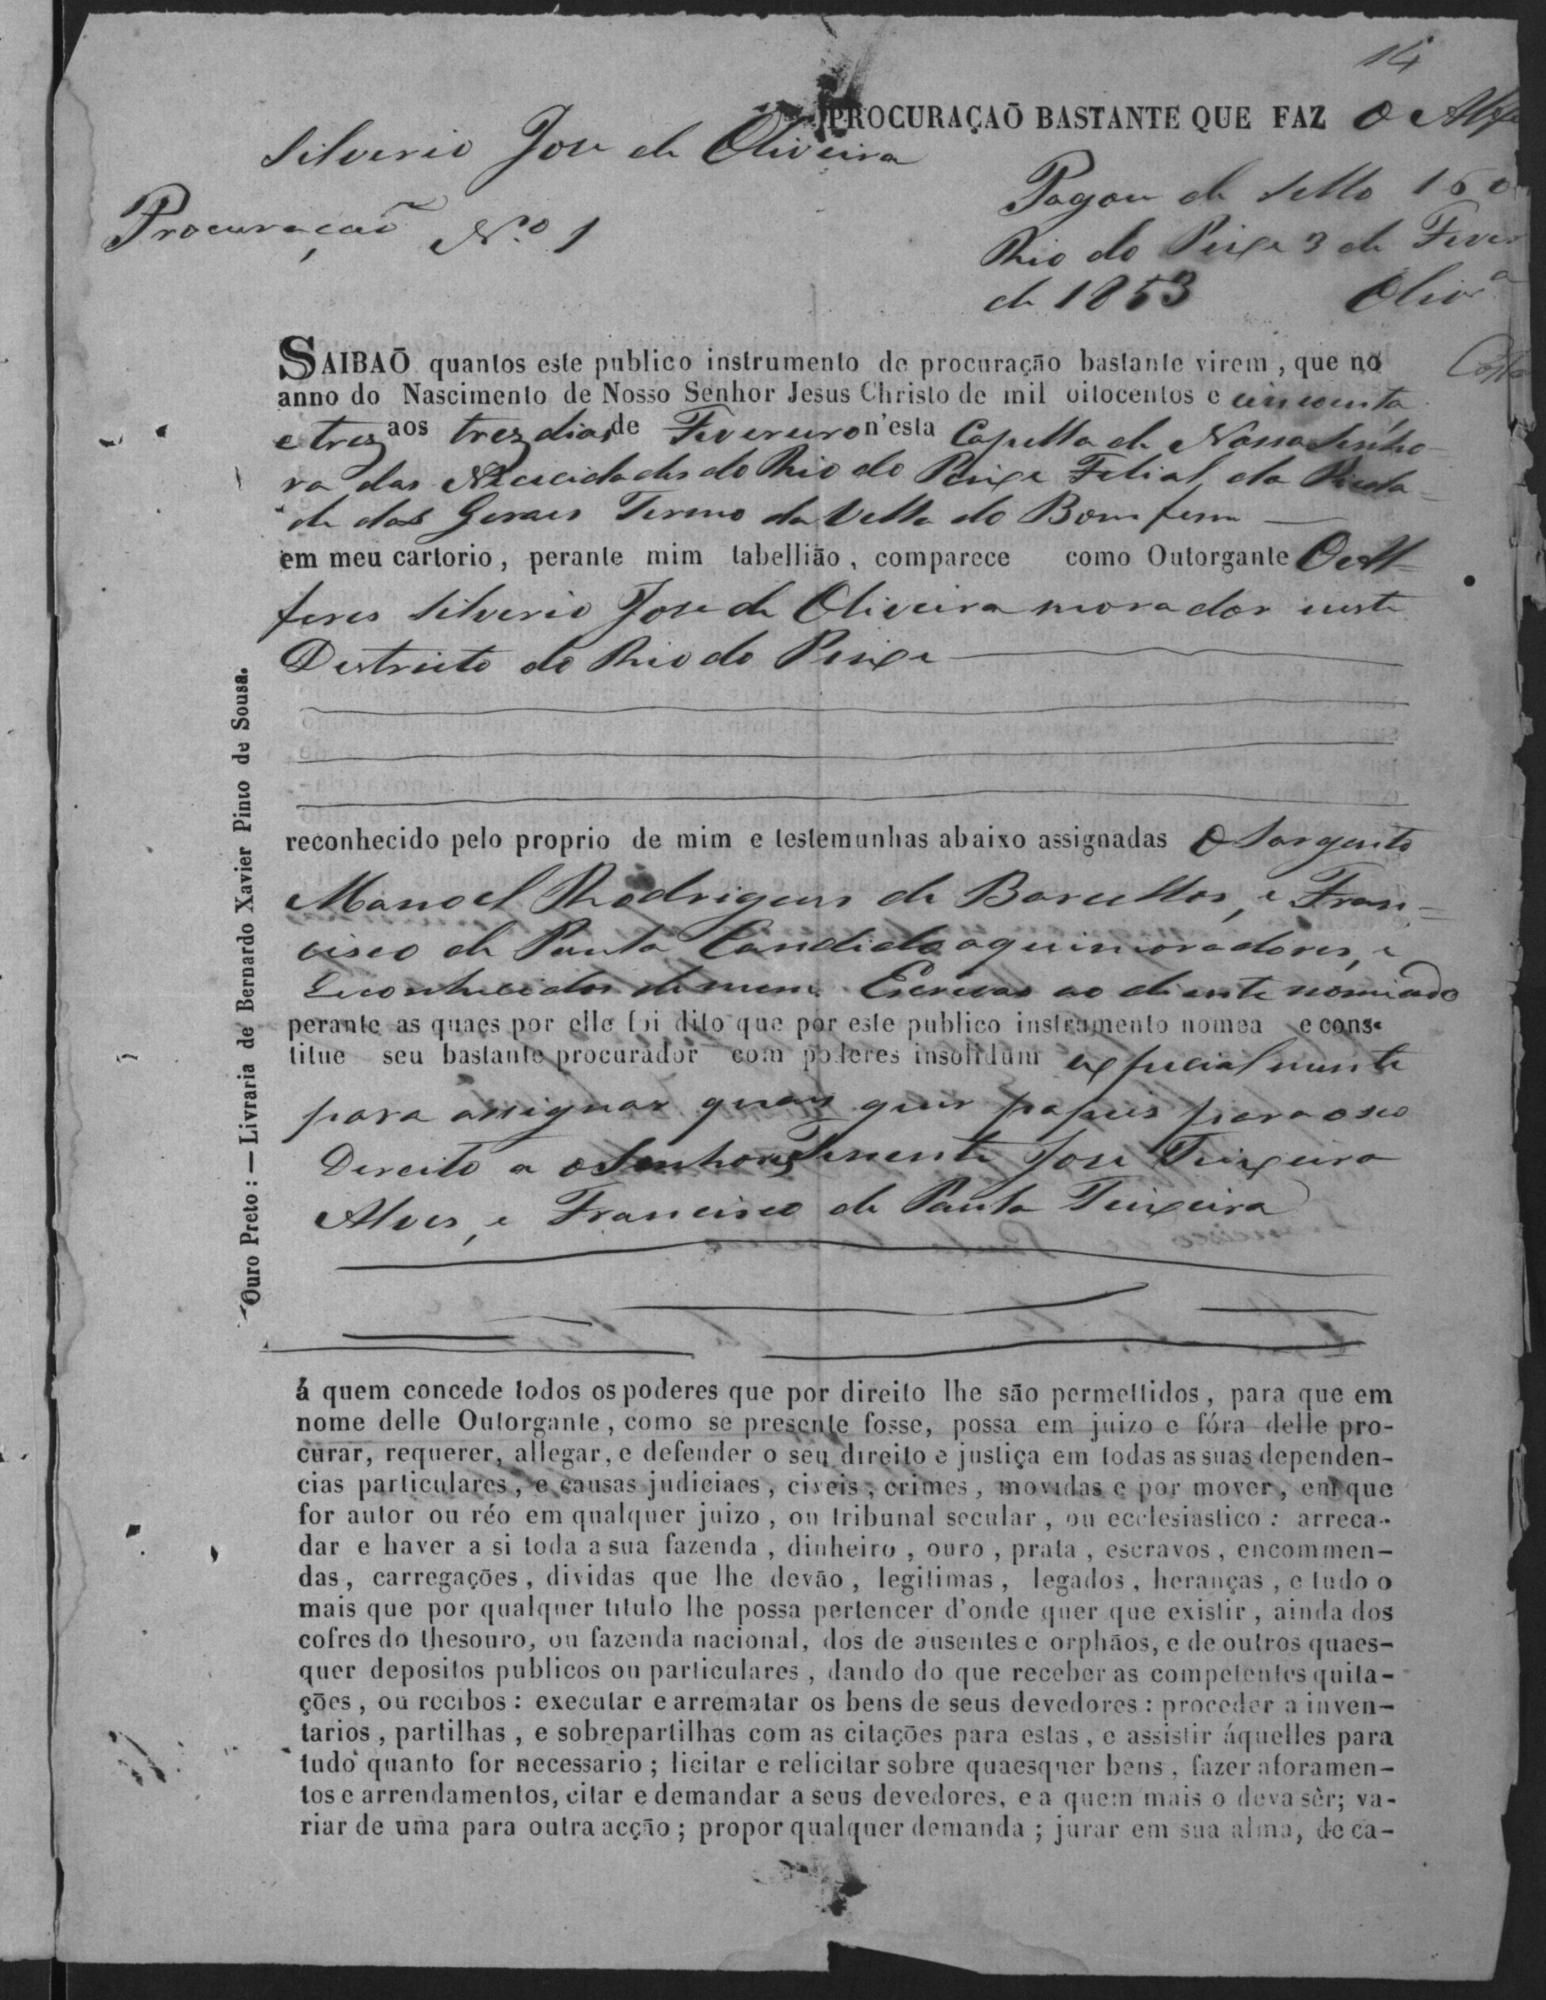 14
PROCURAÇAÕ BASTANTE QUE FAZ O Alfe
Silverio Jose de Oliveira
Pagou de Sello 160
Procuração N.º 1
Rio do Peixe 3 de Fever
de 1853 Olivrª
Costa
SAIBAÕ quantos este publico instrumento de procuração bastante virem, que no
anno do Nascimento de Nosso Senhor Jesus Christo de mil oitocentos e cincoenta
e trez aos trez dias de Fevereiro n'esta Capella de Nossa Senho-
ra das Necicidades do Rio do Peixe Filial da Pieda-
de dos Geraes Termo da Villa do Bom fim
em meu cartorio, perante mim tabellião, comparece como Outorgante O Al-
feres Silverio Jose de Oliveira morador neste
Destricto do Rio do Peixe
reconhecido pelo proprio de mim e testemunhas abaixo assignadas O Sargento
Manoel Rodrigues de Barcellos, e Fran-
cisco de Paula Candido aqui moradores, e
reconhecidos de mim Escrivão ao diante nomiado
perante as quaes por elle foi dito que por este publico instrumento nomea e cons-
titue seu bastante procurador com poderes insolidum expecialmente
para assignar quais quer papeis para o seo
Dereito a o Senhores Tenente Jose Teixeira
Alves, e Francisco de Paula Teixeira
Ouro Preto: — Livraria de Bernardo Xavier Pinto de Sousa.
á quem concede todos os poderes que por direito lhe são permettidos, para que em
nome delle Outorgante, como se presente fosse, possa em juizo e fóra delle pro-
curar, requerer, allegar, e defender o seu direito e justiça em todas as suas dependen-
cias particulares, e causas judiciaes, civeis, crimes, movidas e por mover, em que
for autor ou réo em qualquer juizo, ou tribunal secular, ou ecclesiastico: arreca-
dar e haver a si toda a sua fazenda, dinheiro, ouro, prata, escravos, encommen-
das, carregações, dividas que lhe devão, legitimas, legados, heranças, e tudo o
mais que por qualquer titulo lhe possa pertencer d'onde quer que existir, ainda dos
cofres do thesouro, ou fazenda nacional, dos de ausentes e orphãos, e de outros quaes-
quer depositos publicos ou particulares, dando do que receber as competentes quita-
ções, ou recibos: executar e arrematar os bens de seus devedores: proceder a inven-
tarios, partilhas, e sobrepartilhas com as citações para estas, e assistir áquelles para
tudo quanto for necessario; licitar e relicitar sobre quaesquer bens, fazer aforamen-
tos e arrendamentos, citar e demandar a seus devedores, e a quem mais o deva sêr; va-
riar de uma para outra acção; propor qualquer demanda; jurar em sua alma, de ca-